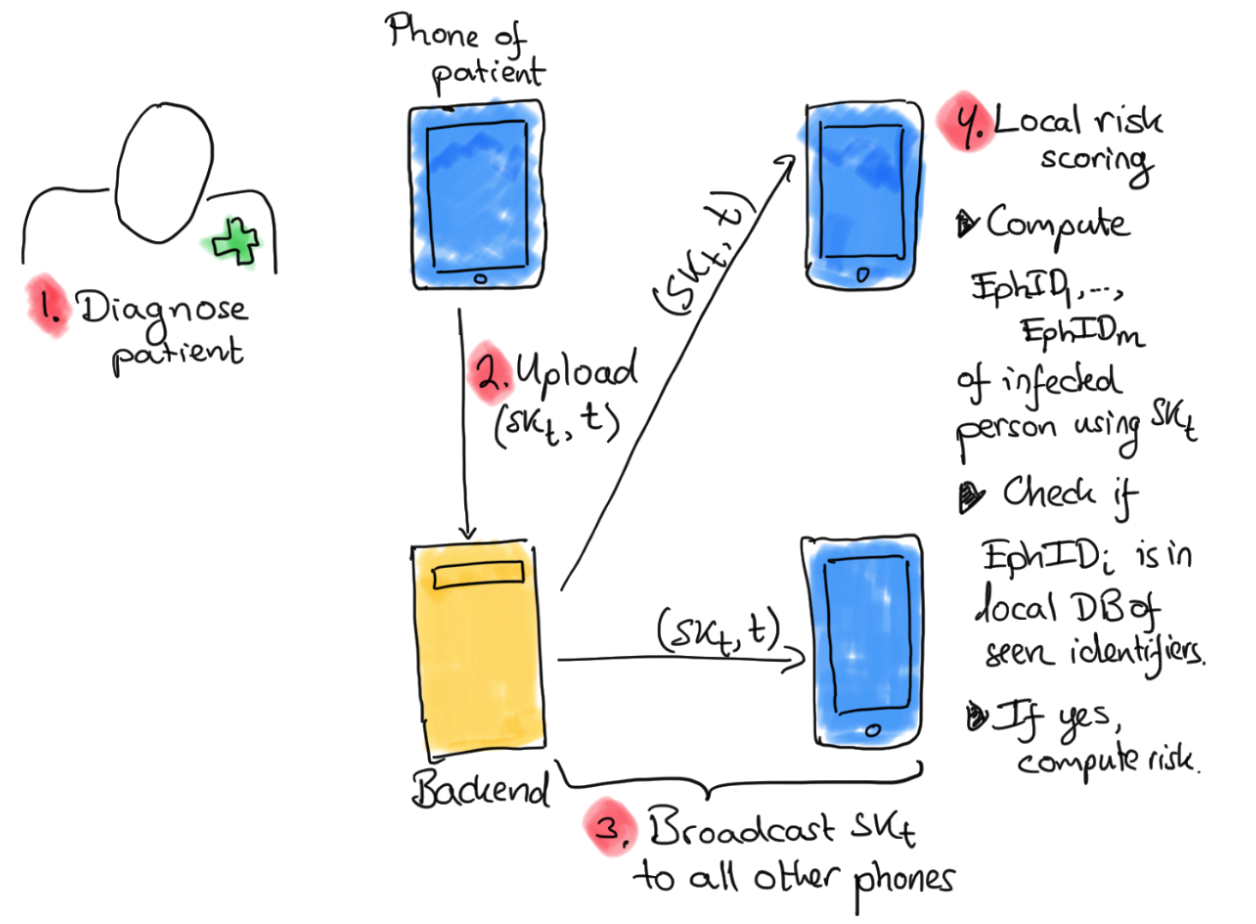 Phone of
patient
1. Diagnose
patient
2. Upload
(SKt, t)
(SKt, t)
(SKt, t)
Backend
3. Broadcast SKt
to all other phones
4. Local risk
scoring
Compute
EphID1,...,
EphIDm
of infected
person using SKt
Check if
EphIDi is in
local DB of
seen identifiers.
If yes,
compute risk.